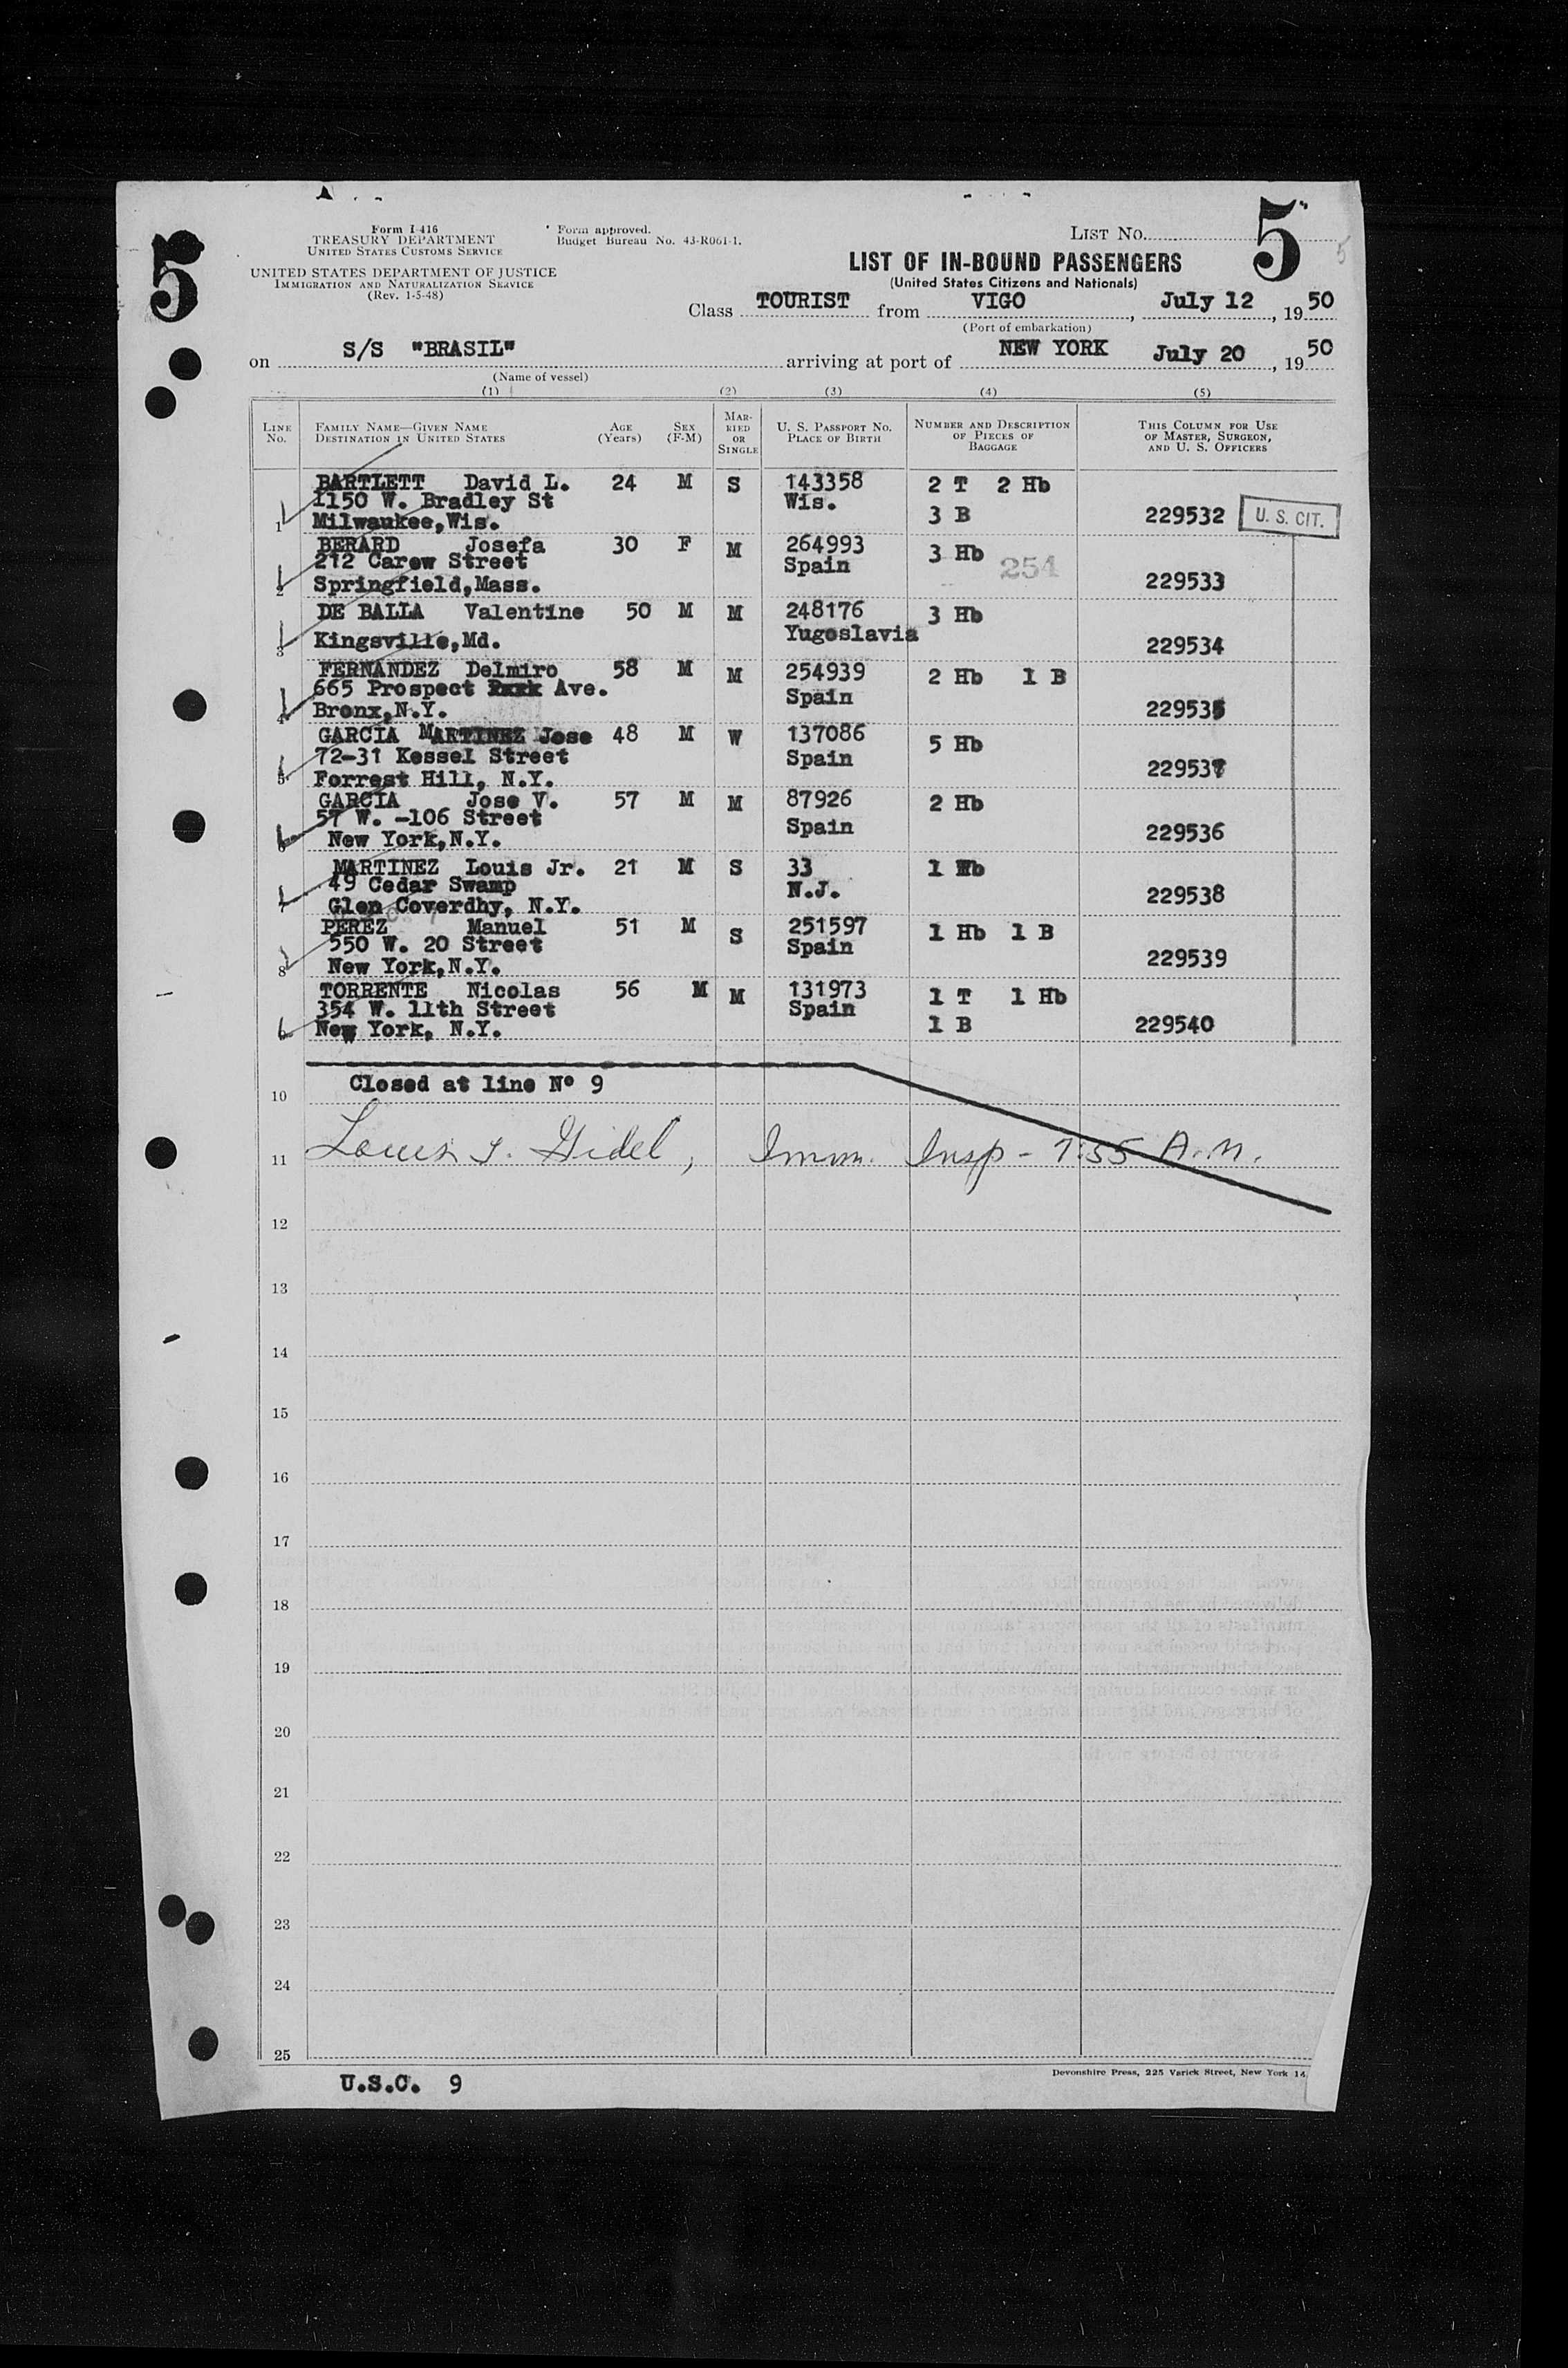 5
Form I-416
TREASURY DEPARTMENT
UNITED STATES CUSTOMS SERVICE
UNITED STATES DEPARTMENT OF JUSTICE
IMMIGRATION AND NATURALIZATION SERVICE
(Rev. 1-5-48)
Form approved.
Budget Bureau No. 43-R061-1.
LIST NO. 5
5
LIST OF IN-BOUND PASSENGERS
(United States Citizens and Nationals)
Class TOURIST from VIGO, July 12, 1950
(Port of embarkation)
on S/S "BRASIL" arriving at port of NEW YORK July 20, 1950
(Name of vessel)
(1) (2) (3) (4) (5)
LINE NO.
FAMILY NAME—GIVEN NAME
DESTINATION IN UNITED STATES
AGE (Years)
SEX (F-M)
MARRIED OR SINGLE
U. S. PASSPORT NO.
PLACE OF BIRTH
NUMBER AND DESCRIPTION OF PIECES OF BAGGAGE
THIS COLUMN FOR USE OF MASTER, SURGEON, AND U. S. OFFICERS
BARTLETT David L. 24 M S 143358 2 T 2 Hb
1150 W. Bradley St Wis.
1 Milwaukee,Wis. 3 B 229532 U. S. CIT.
BERARD Josefa 30 F M 264993 3 Hb
212 Carew Street Spain 254
2 Springfield,Mass. 229533
DE BALLA Valentine 50 M M 248176 3 Hb
3 Kingsville,Md. Yugoslavia 229534
FERNANDEZ Delmiro 58 M M 254939 2 Hb 1 B
665 Prospect Ave. Spain
4 Bronx,N.Y. 229535
GARCIA MARTINEZ Jose 48 M W 137086 5 Hb
72-31 Kessel Street Spain
5 Forrest Hill, N.Y. 229537
GARCIA Jose V. 57 M M 87926 2 Hb
57 W. -106 Street Spain
6 New York,N.Y. 229536
MARTINEZ Louis Jr. 21 M S 33 1 Hb
49 Cedar Swamp N.J.
7 Glen Coverdhy, N.Y. 229538
PEREZ Manuel 51 M S 251597 1 Hb 1 B
550 W. 20 Street Spain
8 New York,N.Y. 229539
TORRENTE Nicolas 56 M M 131973 1 T 1 Hb
354 W. 11th Street Spain
New York, N.Y. 1 B 229540
10 Closed at line Nº 9
11 Louis J. Gidel, Imm. Insp - 7:55 A.M.
12
13
14
15
16
17
18
19
20
21
22
23
24
25
Devonshire Press, 225 Varick Street, New York 14
U.S.C. 9